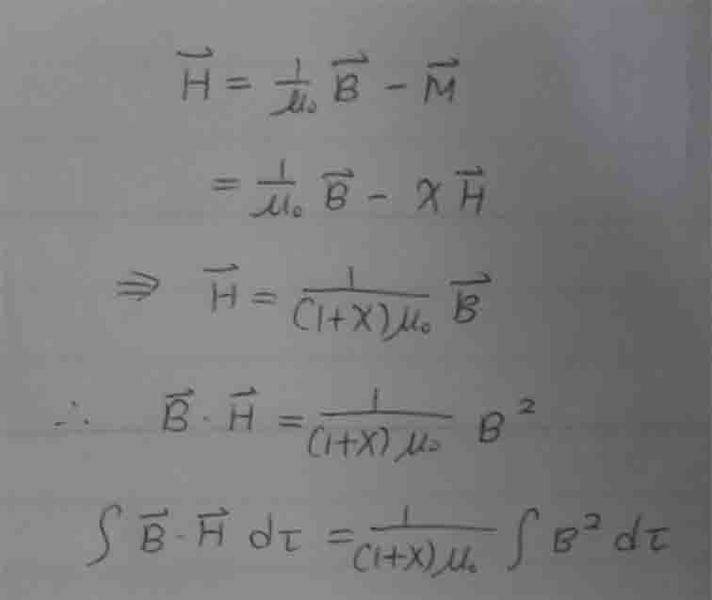 $\vec{H} = \frac{1}{\mu_0} \vec{B} - \vec{M}$
$= \frac{1}{\mu_0} \vec{B} - \chi \vec{H}$
$\Rightarrow \vec{H} = \frac{1}{(1+\chi)\mu_0} \vec{B}$
$\therefore \vec{B} \cdot \vec{H} = \frac{1}{(1+\chi)\mu_0} B^2$
$\int \vec{B} \cdot \vec{H} \, d\tau = \frac{1}{(1+\chi)\mu_0} \int B^2 \, d\tau$